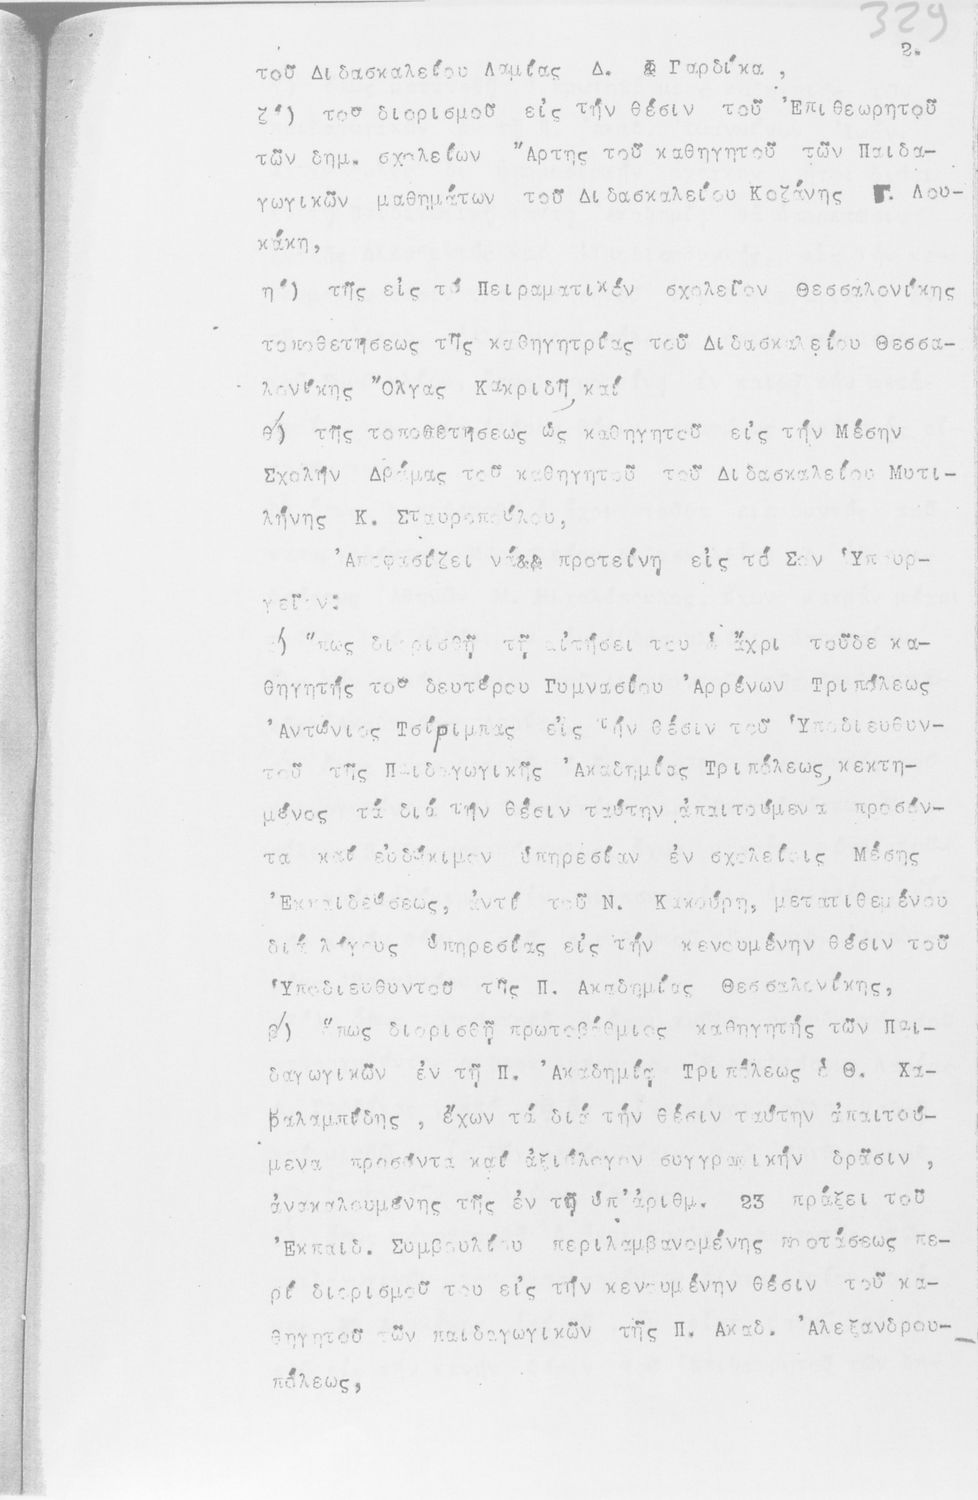 329
2.
τοῦ Διδασκαλείου Λαμίας Δ. Γαρδίκα ,
ζ') τοῦ διορισμοῦ εἰς τήν θέσιν τοῦ Ἐπιθεωρητοῦ
τῶν δημ. σχολείων Ἄρτης τοῦ καθηγητοῦ τῶν Παιδα-
γωγικῶν μαθημάτων τοῦ Διδασκαλείου Κοζάνης Γ. Λου-
κάκη,
η') τῆς εἰς τό Πειραματικόν σχολεῖον Θεσσαλονίκης
τοποθετήσεως τῆς καθηγητρίας τοῦ Διδασκαλείου Θεσσα-
λονίκης Ὄλγας Κακριδῆ, καί
θ') τῆς τοποθετήσεως ὡς καθηγητοῦ εἰς τήν Μέσην
Σχολήν Δράμας τοῦ καθηγητοῦ τοῦ Διδασκαλείου Μυτι-
λήνης Κ. Σταυροπούλου,
Ἀποφασίζει νά προτείνη εἰς τό Σον Ὑπουρ-
γεῖον:
α') ὅπως διορισθῇ τῇ αἰτήσει του ὁ ἄχρι τοῦδε κα-
θηγητής τοῦ δευτέρου Γυμνασίου Ἀρρένων Τριπόλεως
Ἀντώνιος Τσίριμπας εἰς τήν θέσιν τοῦ Ὑποδιευθυν-
τοῦ τῆς Παιδαγωγικῆς Ἀκαδημίας Τριπόλεως, κεκτη-
μένος τά διά τήν θέσιν ταύτην ἀπαιτούμενα προσόν-
τα καί εὐδόκιμον ὑπηρεσίαν ἐν σχολείοις Μέσης
Ἐκπαιδεύσεως, ἀντί τοῦ Ν. Κακούρη, μετατιθεμένου
διά λόγους ὑπηρεσίας εἰς τήν κενουμένην θέσιν τοῦ
Ὑποδιευθυντοῦ τῆς Π. Ακαδημίας Θεσσαλονίκης,
β') ὅπως διορισθῇ πρωτοβάθμιος καθηγητής τῶν Παι-
δαγωγικῶν ἐν τῇ Π. Ἀκαδημίᾳ Τριπόλεως ὁ Θ. Χα-
ραλαμπίδης , ἔχων τά διά τήν θέσιν ταύτην ἀπαιτού-
μενα προσόντα καί ἀξιόλογον συγγραφικήν δρᾶσιν ,
ἀνακαλουμένης τῆς ἐν τῇ ὑπ'ἀριθμ. 23 πράξει τοῦ
Ἐκπαιδ. Συμβουλίου περιλαμβανομένης προτάσεως πε-
ρί διορισμοῦ του εἰς τήν κενουμένην θέσιν τοῦ κα-
θηγητοῦ τῶν παιδαγωγικῶν τῆς Π. Ακαδ. Ἀλεξανδρου-
πόλεως,